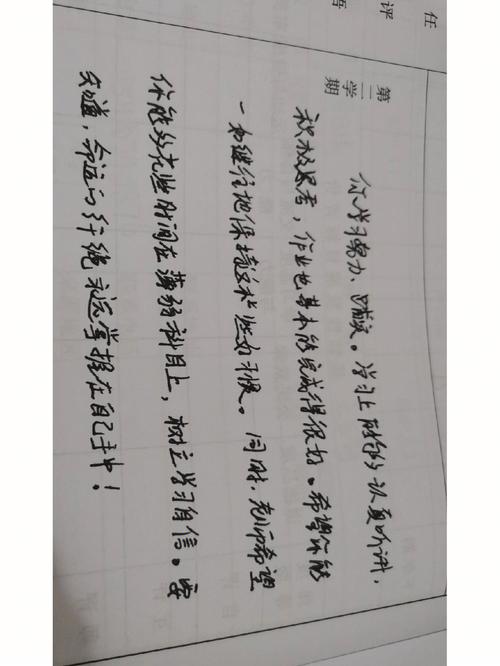 任
评
语
第二学期
你学习努力、踏实。学习上能够认真听讲，
积极思考，作业也基本能完成得很好。希望你能
一如继往地保持这种学习好习惯。同时，老师希望
你能够花些时间在薄弱科目上，树立学习自信。要
知道，命运的纤绳永远掌握在自己手中！